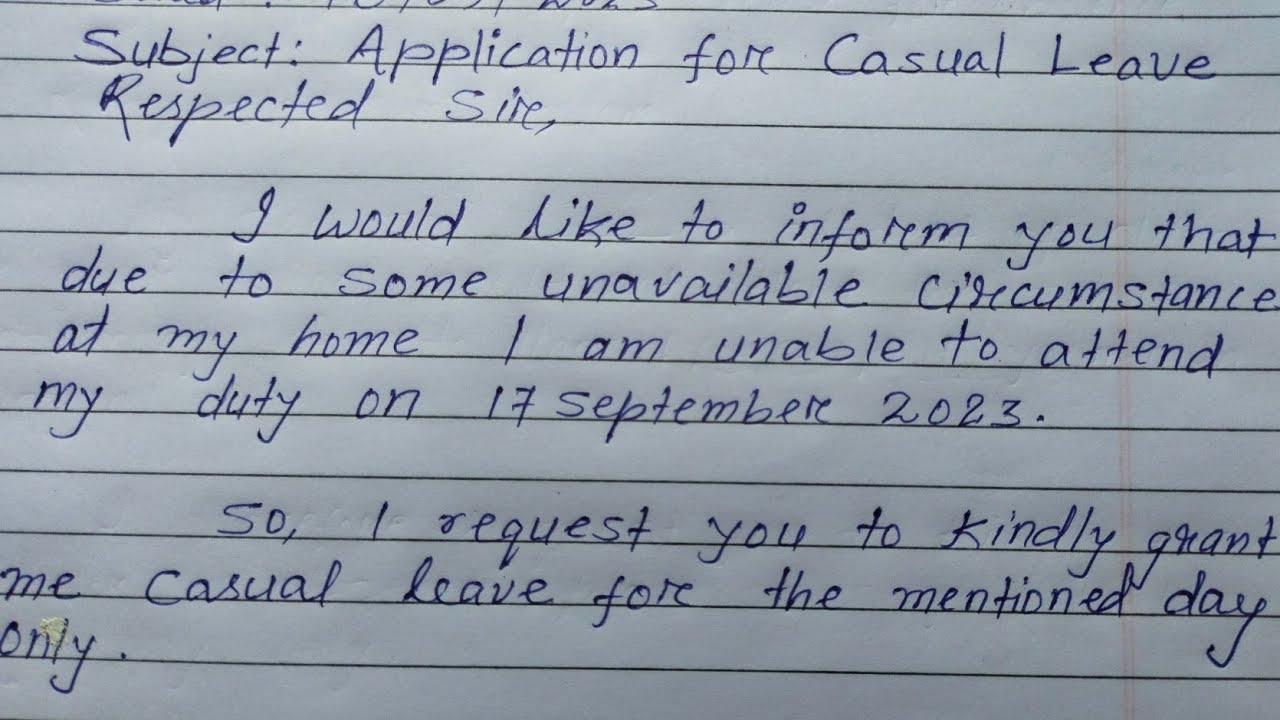 Subject: Application for Casual Leave
Respected Sir,
I would like to inform you that
due to some unavailable circumstance
at my home I am unable to attend
my duty on 17 September 2023.
So, I request you to kindly grant
me casual leave for the mentioned day
only.